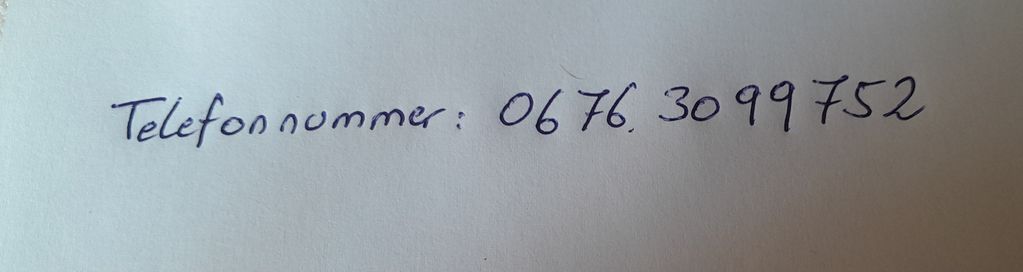 Telefonnummer: 0676.3099752